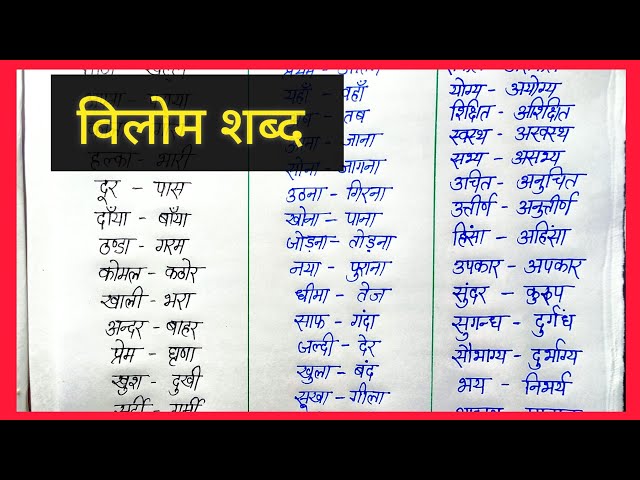 विलोम शब्द
हल्का - भारी
दूर - पास
दाँया - बाँया
ठण्डा - गरम
कोमल - कठोर
खाली - भरा
अन्दर - बाहर
प्रेम - घृणा
खुश - दुखी
सर्दी - गर्मी
यहाँ - वहाँ
तब
जाना
सोना - जागना
उठना - गिरना
खोना - पाना
जोड़ना - तोड़ना
नया - पुराना
धीमा - तेज
साफ - गंदा
जल्दी - देर
खुला - बंद
सूखा - गीला
योग्य - अयोग्य
शिक्षित - अशिक्षित
स्वस्थ - अस्वस्थ
सभ्य - असभ्य
उचित - अनुचित
उत्तीर्ण - अनुत्तीर्ण
हिंसा - अहिंसा
उपकार - अपकार
सुंदर - कुरूप
सुगन्ध - दुर्गंध
सौभाग्य - दुर्भाग्य
भय - निभर्य